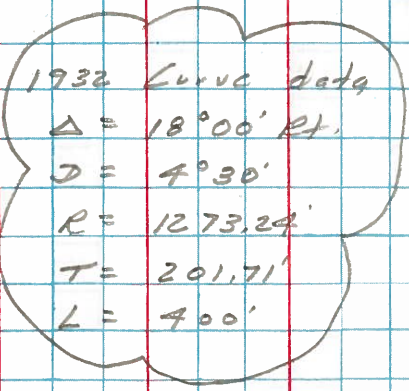 1932 Curve data
Δ = 18°00' Rt.
D = 4°30'
R = 1273.24'
T = 201.71'
L = 400'